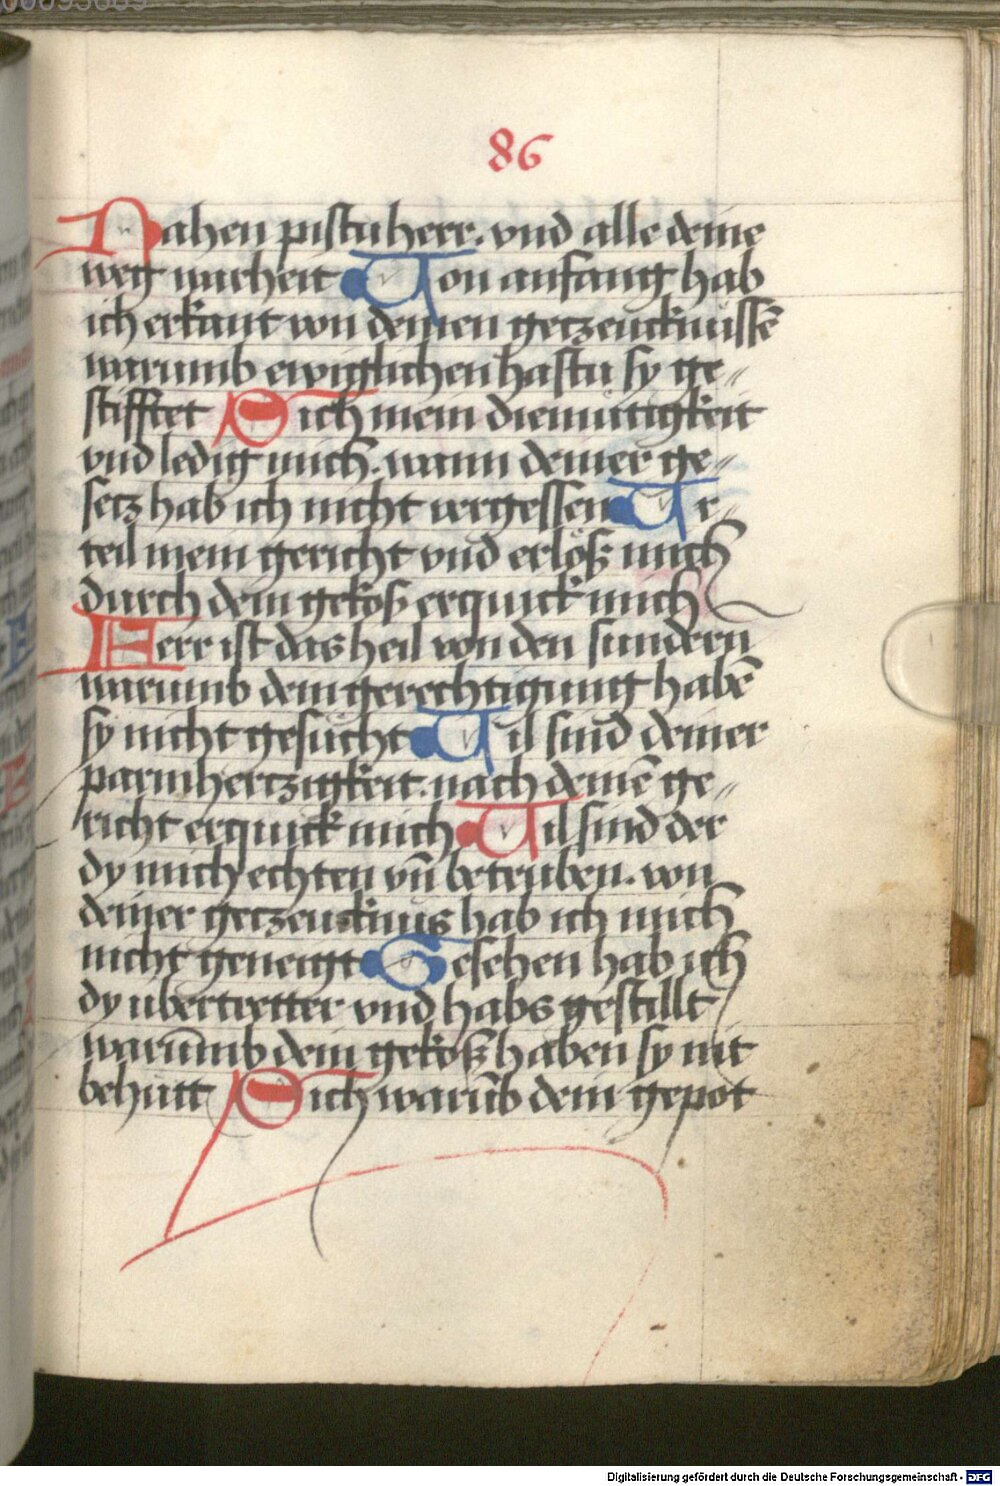 86
Nahen pistu herr. vnd alle deine
weg warheit Von anfang hab
ich erkant von deinen getzeucknüssē
warumb ewiglichen hastu sy ge„
stifftet Sich mein diemütigkeit
vnd ledig mich. wann deiner ge„
setz hab ich nicht vergessen Vr„
teil mein gericht vnd erlöß mich
durch dein gekoß erquick mich
Herr ist das heil von den sundern
warumb dein gerechtigung habē
sy nicht gesücht Vil sind deiner
parmhertzigkeit. nach deinē ge„
richt erquick mich Vil sind der
dy mich echten vn̄ betrüben. von
deiner getzeucknus hab ich mich
nicht geneigt Gesehen hab ich
dy übertretter vnd habs gestillt
warūmb dein gekoß haben sy nit
behütt Sich warūb dein gepot
Digitalisierung gefördert durch die Deutsche Forschungsgemeinschaft - DFG